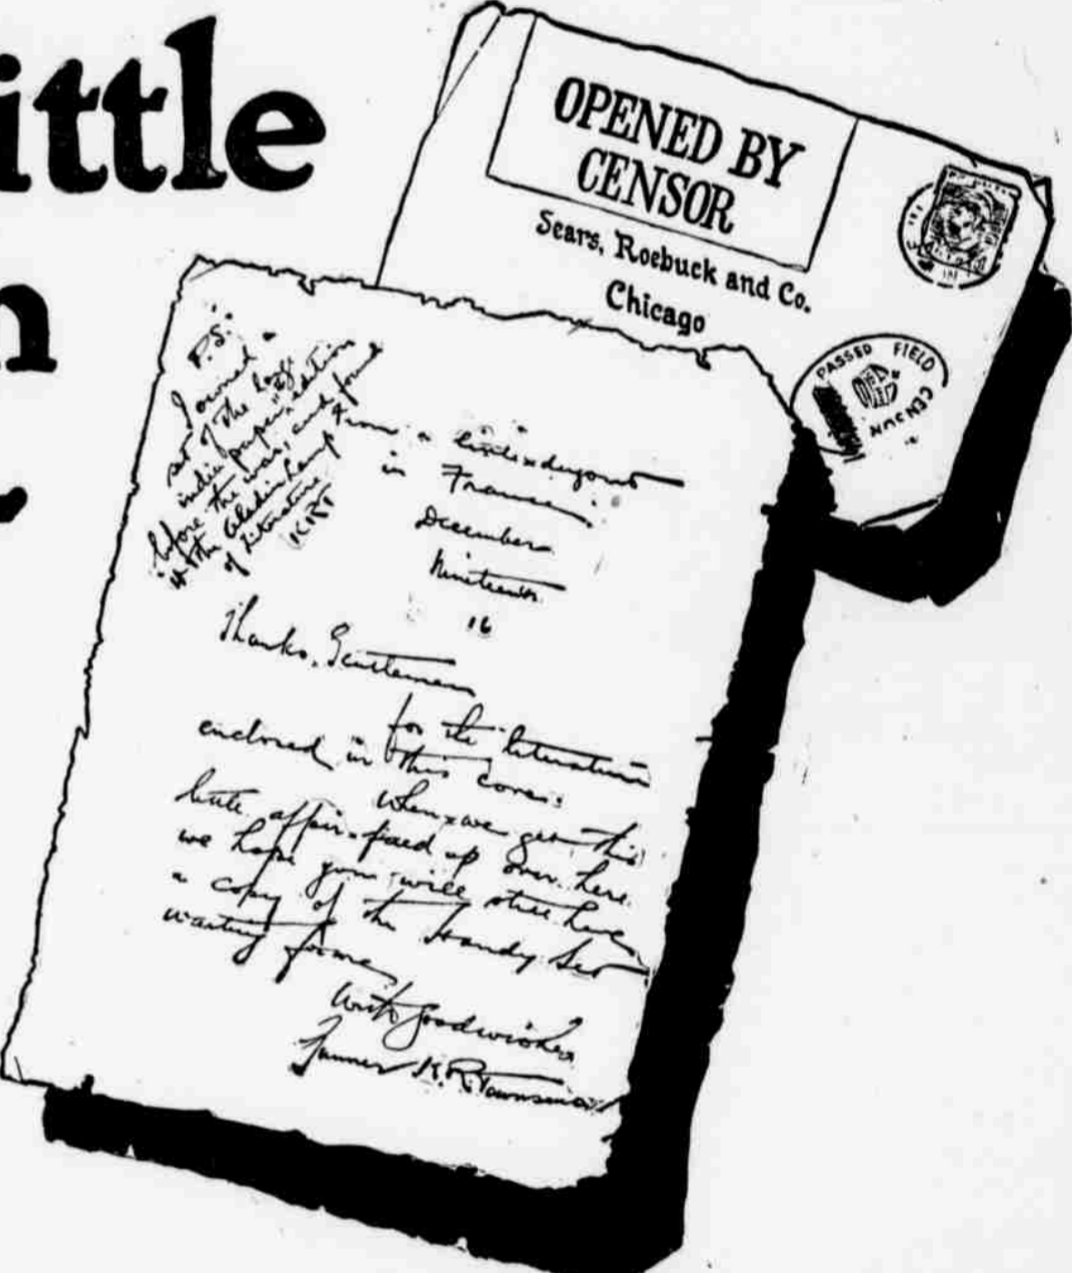 ittle
n
OPENED BY
CENSOR
Sears, Roebuck and Co.
Chicago
PASSED FIELD
CENSOR
P.S.
I owned a
set of the large
india paper edition
before the war, and found
it the Aladin Lamp
of Literature.
KRT
From a little dugout
in France.
December
Nineteenth
16
Thanks, Gentlemen
for the literature
enclosed in this cover.
When we get this
little affair fixed up over here
we hope you will still have
a copy of the Handy Set
waiting for me
With good wishes
Gunner K.R. Townsend